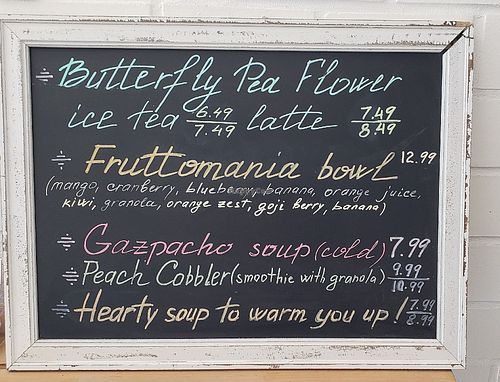 Butterfly Pea Flower
ice tea 6.49/7.49 latte 7.49/8.49
Fruttomania bowl 12.99
(mango, cranberry, blueberry, banana, orange juice,
kiwi, granola, orange zest, goji berry, banana)
Gazpacho soup (cold) 7.99
Peach Cobbler (smoothie with granola) 9.99/10.99
Hearty soup to warm you up! 7.99/8.99